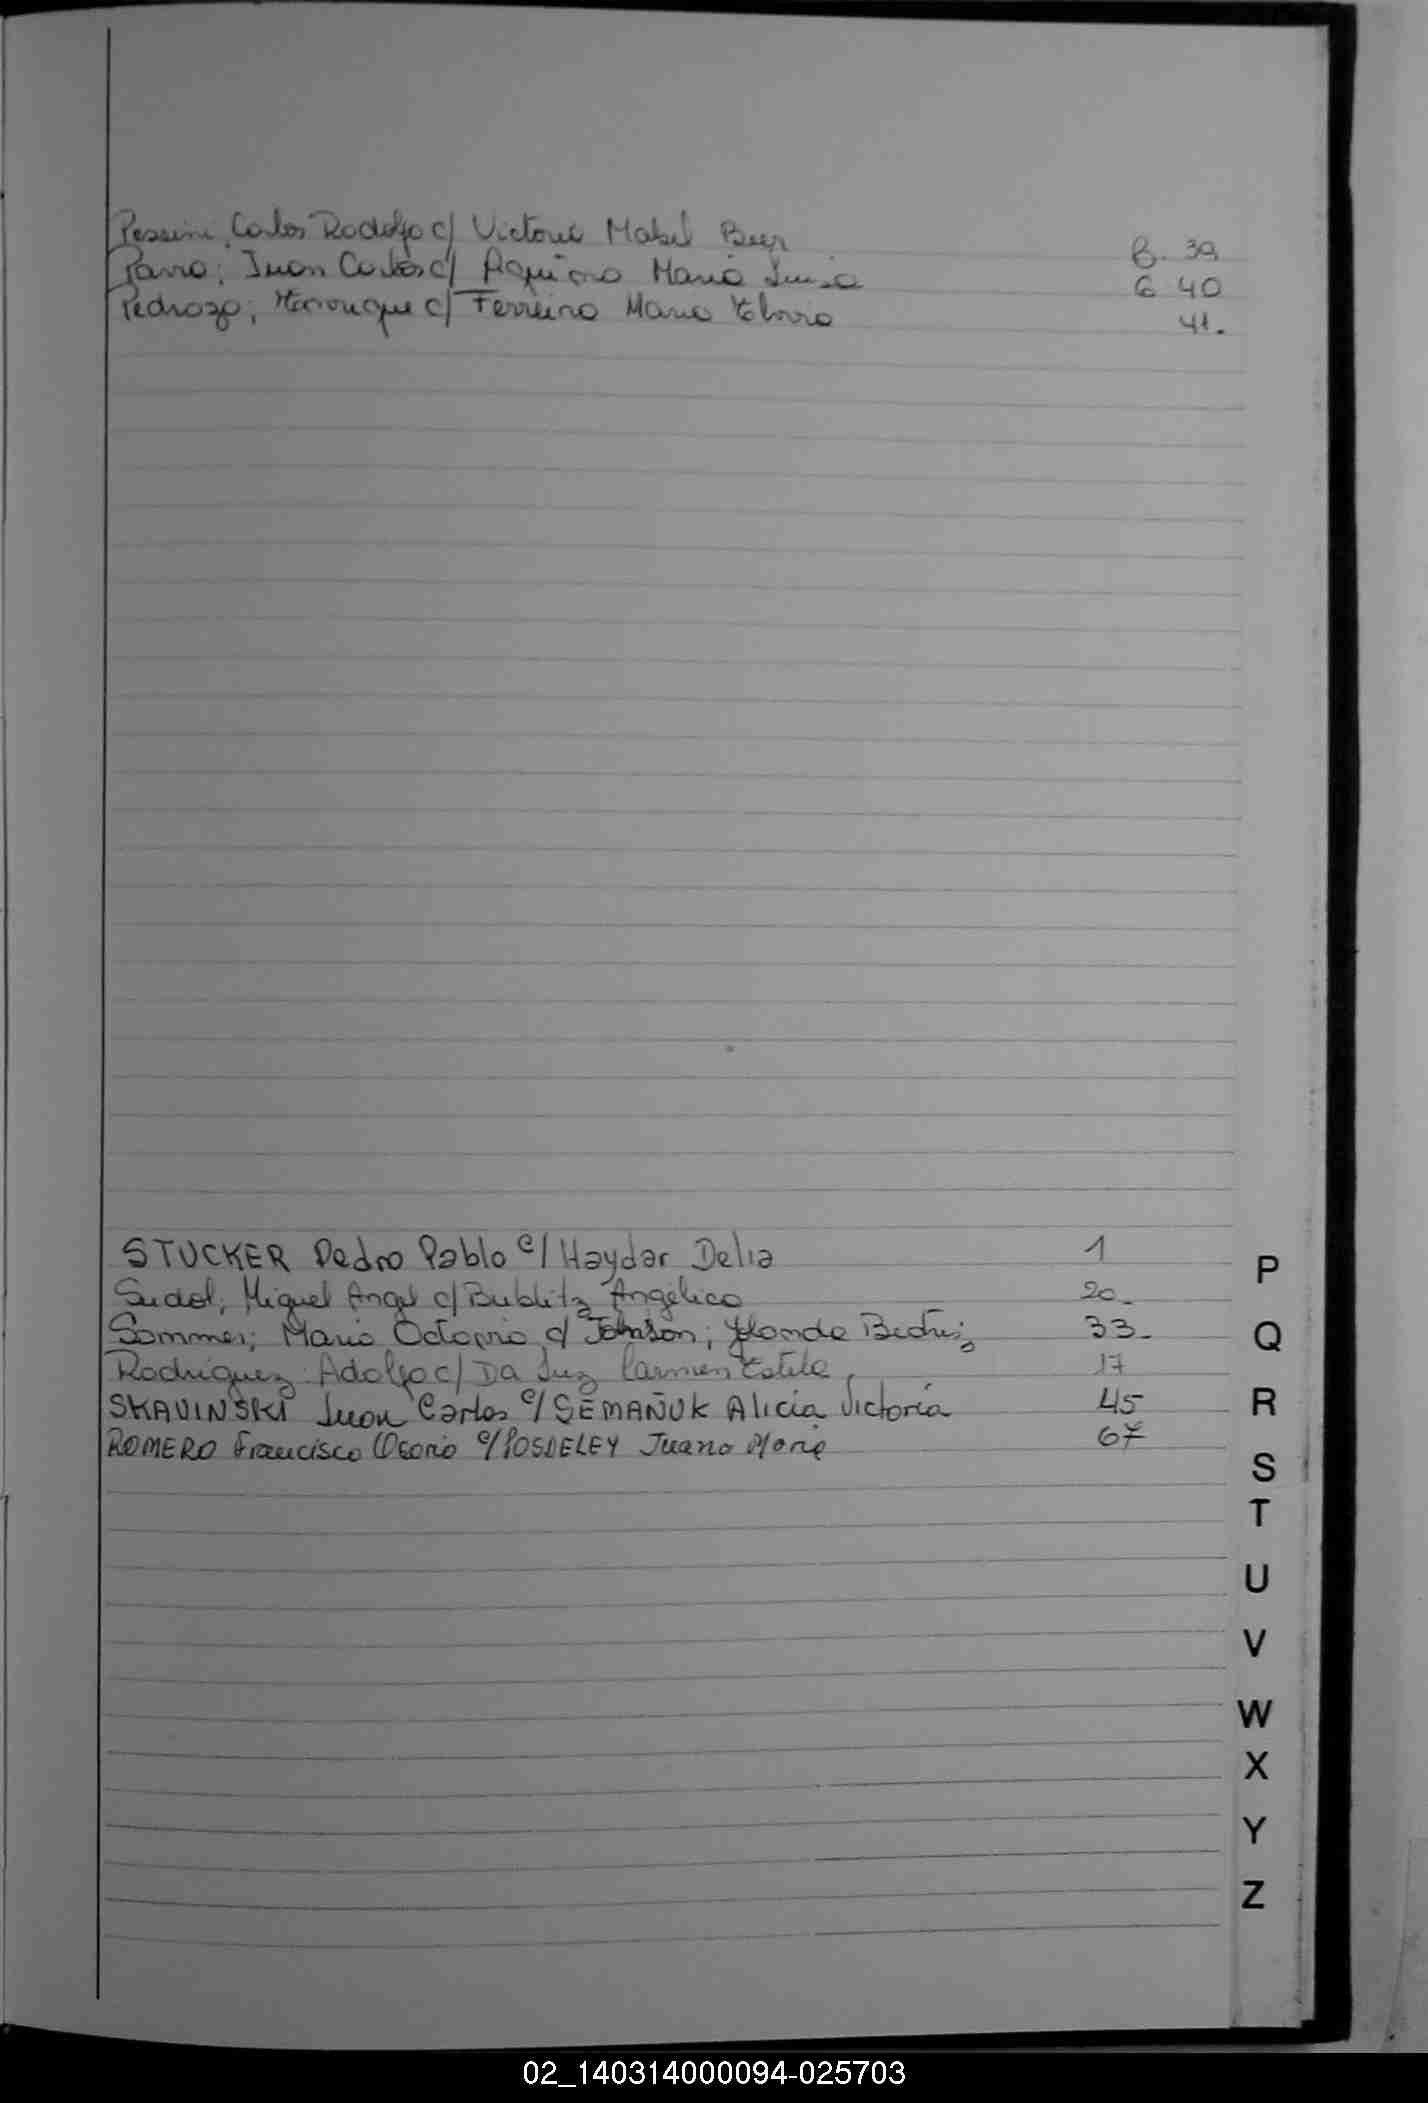 Pessini, Carlos Rodolfo c/ Victoria Mabel Beer 39
Parra; Juan Carlos c/ Aquino Maria Luisa 40
Pedrozo; c/ Ferreira Maria 41.
STUCKER Pedro Pablo c/ Haydar Delia 1
Sudol, Miguel Angel c/ Bublitz Angélica 20.
Sommer; Mario Octavio c/ Johnson; Yolanda Beatriz 33.
Rodriguez Adolfo c/ Da Luz Carmen Estela, 17
SKAVINSKI Juan Carlos c/ SEMAÑUK Alicia Victoria 45
ROMERO Francisco Osorio c/ POSDELEY Juana Maria 67
P
Q
R
S
T
U
V
W
X
Y
Z
02_140314000094-025703